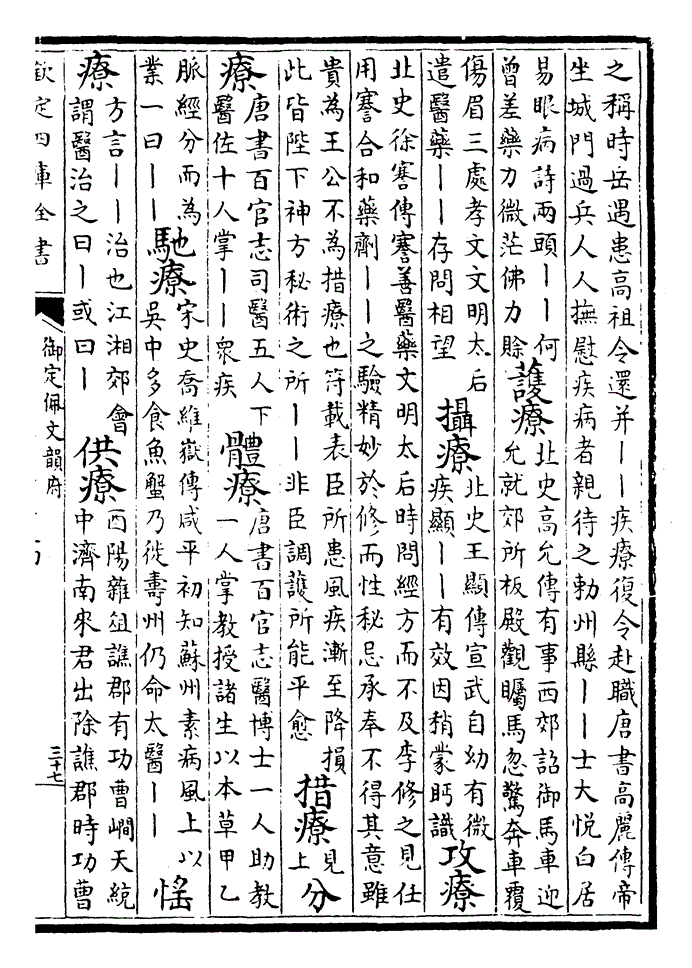 之稱時岳遇患高祖令還并丨丨疾療復令赴職唐書高麗傳帝
坐城門過兵人人撫慰疾病者親待之勑州縣丨丨士大悦白居
易眼病詩兩頭丨丨何
曾差藥力微茫佛力賖
護療
北史高允傳有事西郊詔御馬車迎
允就郊所板殿觀矚馬忽驚奔車覆
傷眉三處孝文文明太后
遣醫藥丨丨存問相望
攝療
北史王顯傳宣武自幼有微
疾顯丨丨有效因稍蒙眄識
攻療
北史徐謇傳謇善醫藥文明太后時問經方而不及李修之見任
用謇合和藥劑丨丨之驗精妙於修而性秘忌承奉不得其意雖
貴為王公不為措療也符載表臣所患風疾漸至降損
此皆陛下神方秘術之所丨丨非臣調護所能平愈
措療
見
上
分
療
唐書百官志司醫五人下
醫佐十人掌丨丨衆疾
體療
唐書百官志醫博士一人助教
一人掌教授諸生以本草甲乙
脈經分而為
業一曰丨丨
馳療
宋史喬維嶽傳咸平初知蘇州素病風上以
吳中多食魚蟹乃徙壽州仍命太醫丨丨
愮
療
方言丨丨治也江湘郊會
謂醫治之曰丨或曰丨
供療
酉陽雜俎譙郡有功曹㵎天統
中濟南來君出除譙郡時功曹
欽定四庫全書
御定佩文韻府
三十七